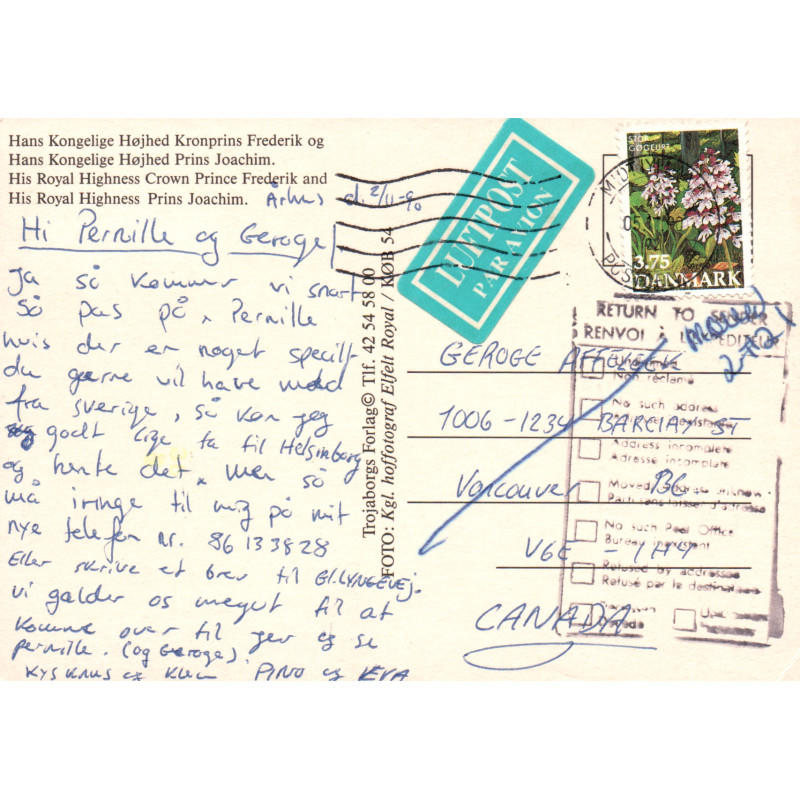 Hans Kongelige Højhed Kronprins Frederik og
Hans Kongelige Højhed Prins Joachim.
His Royal Highness Crown Prince Frederik and
His Royal Highness Prins Joachim.
Århus d. 2/11-90
Hi Pernille og Geroge
Ja så kommer vi snart
Så pas på, Pernille
hvis der er noget specilt
du gærne vil have med
fra Sverige, så kan jeg
godt lige ta til Helsinborg
og hente det, men så
må i ringe til mig på mit
nye telefon nr. 86133828
Eller skrive et brev til Gl.Lyngevej.
vi gælder os meget til at
komme over til jer og se
pernille. (og Geroge).
KYS KNUS og KLEM PINO og EVA
Trojaborgs Forlag© Tlf. 42 54 58 00
FOTO: Kgl. hoffotograf Elfelt Royal / KØB 54
LUFTPOST
PAR AVION
STOR
GØGEURT
3.75
DANMARK
RETURN TO SENDER
RENVOI À L'EXPÉDITEUR
MOVED
Non réclamé
No such address
Address incomplete
Adresse incomplète
Moved
No such Post Office
Bureau inexistant
Refused by addressee
Refusé par le destinataire
GEROGE AFFLECK
1006-1234 BARCLAY ST
Vancouver BC
V6E-1H4
CANADA